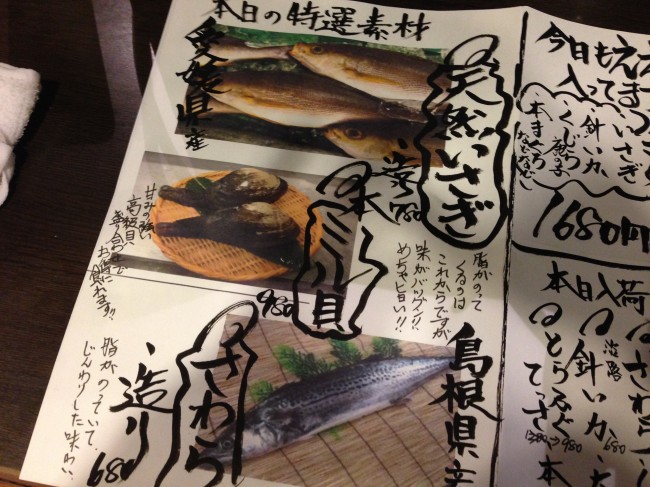 本日の特選素材
愛媛県産
天然いさぎ
造り
780
脂がのって
くるのは
これからですが
味がバツグン!!
めちゃ旨い!!
本ミル貝
980
甘みの強い
高級貝
盛り合わせで
お得に
食れます!!
島根県産
さわら
造り
680
脂がのっていて、
じんわりした味わい
今日もええ
入ってまっ
いさぎ
針いか
くじら
本まぐろ
などなど
1680円
本日入荷
さわら
680
淡路
針いか
とらふぐ
てっさ
1380→980
本